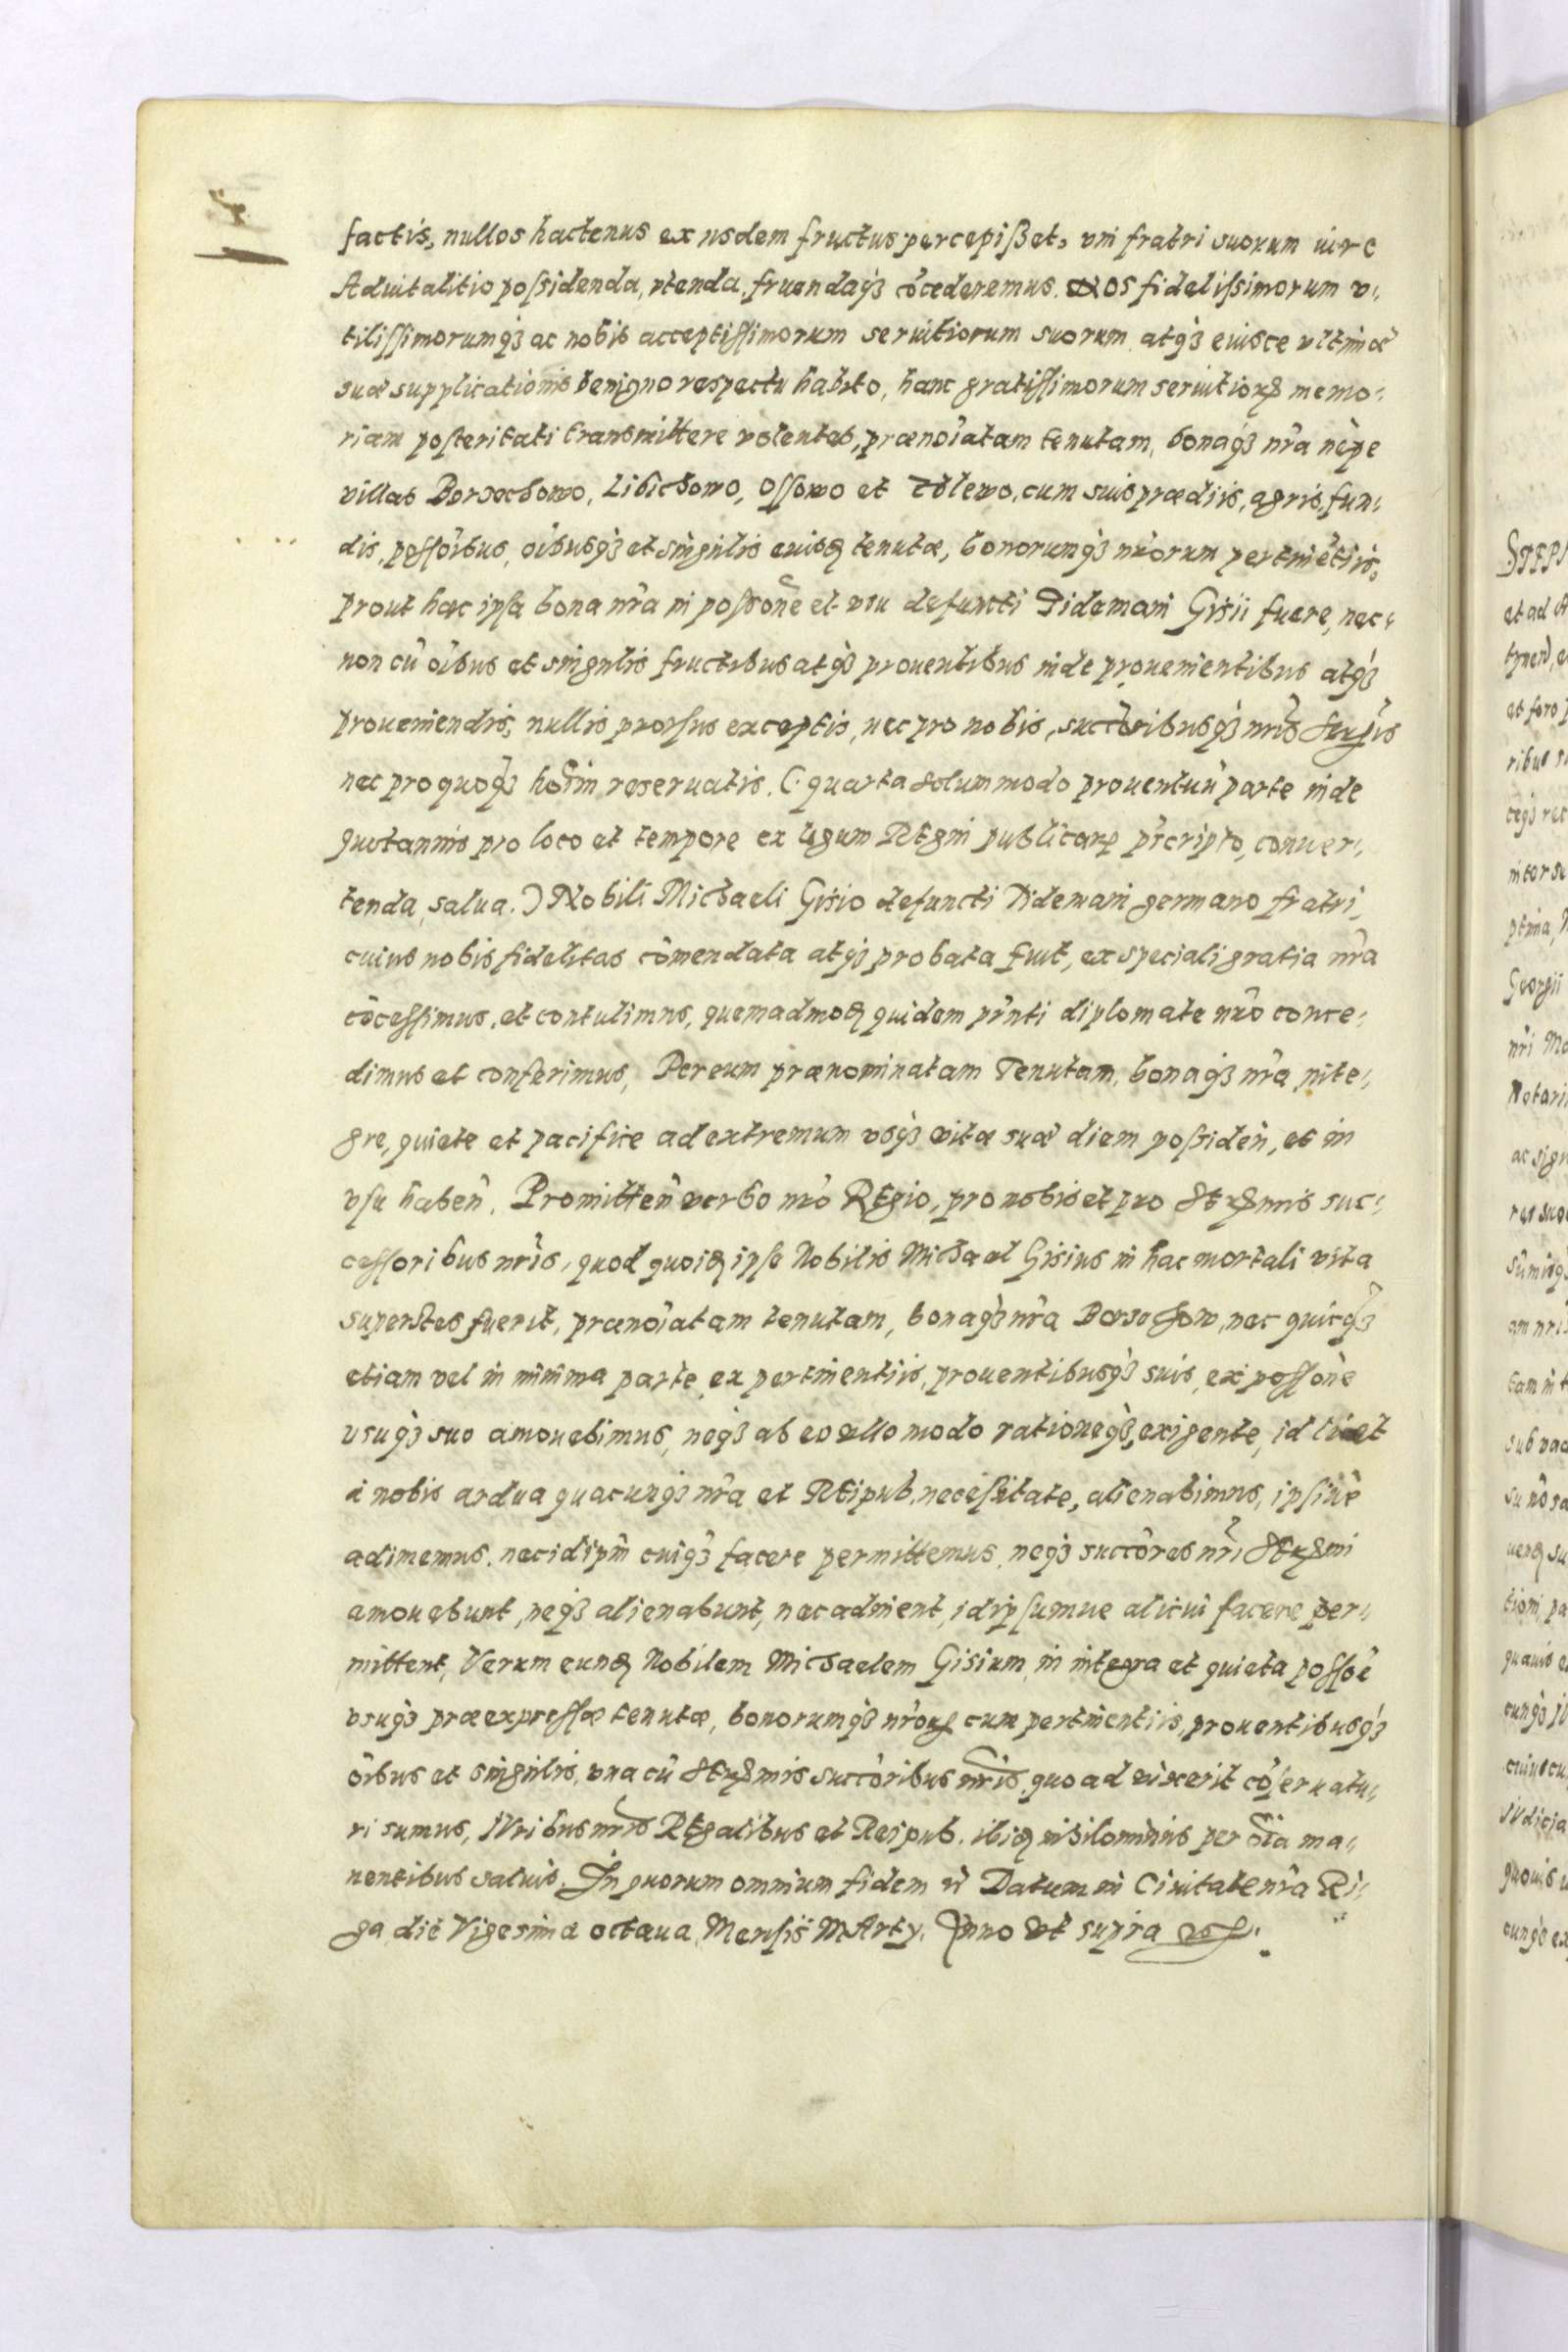 factis, nullos hactenus ex iisdem fructus percepißet, vni fratri suorum iure
Aduitalitio possidenda, vtenda, fruendaq₃ cōcederemus. Nos fidelissimorum v⸗
tilissimorumq₃ ac nobis acceptissimorum seruitiorum suorum atq₃ eiusce vltimæ
suæ supplicationis benigno respectu habito, hanc gratissimorum seruitioꝝ memo⸗
riam posteritati transmittere volentes, prænoīatam tenutam, bonaq₃ nr̃a nēpe
villas Borzechowo, Libichowo, Ossowo et cum suis prædiis, agris, fun⸗
dis, possoībus, oībusq₃ et singulis euisđ tenutæ, bonorumq₃ nr̃orum pertinētiis,
prout hæc ipsa bona nr̃a in possōne et vsu defuncti Tidemani Gisii fuere, nec⸗
non cū oībus et singulis fructibus atq₃ prouentibus inde prouenientibus atq₃
proueniendis, nullis prorsus exceptis, nec pro nobis, succōribusq₃ nr̃is
nec pro quoq₃ hoīm reseruatis. (quarta solummodo prouentuū parte inde
quotannis pro loco et tempore ex legum Regni publicarꝝ p̃scripto, conuer⸗
tenda, salua.) Nobili Michaeli Gisio defuncti Tidemani germano fratri,
cuius nobis fidelitas cōmendata atq₃ probata fuit, ex speciali gratia nr̃a
cōcessimus, et contulimus, quemadmođ quidem p̃nti diplomate nr̃o conce⸗
dimus et conferimus, Per eum prænominatam Tenutam, bonaq₃ nr̃a inte⸗
gre, quiete et pacifice ad extremum vsq₃ vitæ suæ diem possideñ, et in
vsu habeñ. Promitteñ verbo nr̃o Regio, pro nobis et pro Seꝝmis suc⸗
cessoribus nr̃is, quod quoađ ipse Nobilis Michael Gisius in hac mortali vita
superstes fuerit, prænoīatam tenutam, bonaq₃ nr̃a Borzechow, nec quicq₃
etiam vel in minima parte ex pertinentiis, prouentibusq₃ suis, ex possōne
vsuq₃ suo amouebimus, neq₃ ab eo vllo modo rationeq₃, exigente, id licet
à nobis ardua quacunq₃ nr̃a et Reipub. necessitate, alienabimus, ipsiue
adimemus. nec id ipm̃ cuiq₃ facere permittemus, neq₃ succōres nr̃i Seꝝmi
amouebunt, neq₃ alienabunt, nec adiment, id ipsumue alicui facere per⸗
mittent, Verum eunđ Nobilem Michaelem Gisium, in integra et quieta possōe
vsuq₃ præexpressæ tenutæ, bonorumq₃ nr̃oꝝ cum pertinentiis, prouentibusq₃
oībus et singulis, vna cū Seꝝmis succōribus nr̃is. quoad vixerit cōseruatu⸗
ri sumus, Iuribus nr̃is Regalibus et Reipub. ibiđ nihilominus per oīa ma⸗
nentibus saluis. In quorum omnium fidem ẽ Datum in Ciuitate nr̃a Ri⸗
ga die Vigesima octaua Mensis MArty. Anno vt supra